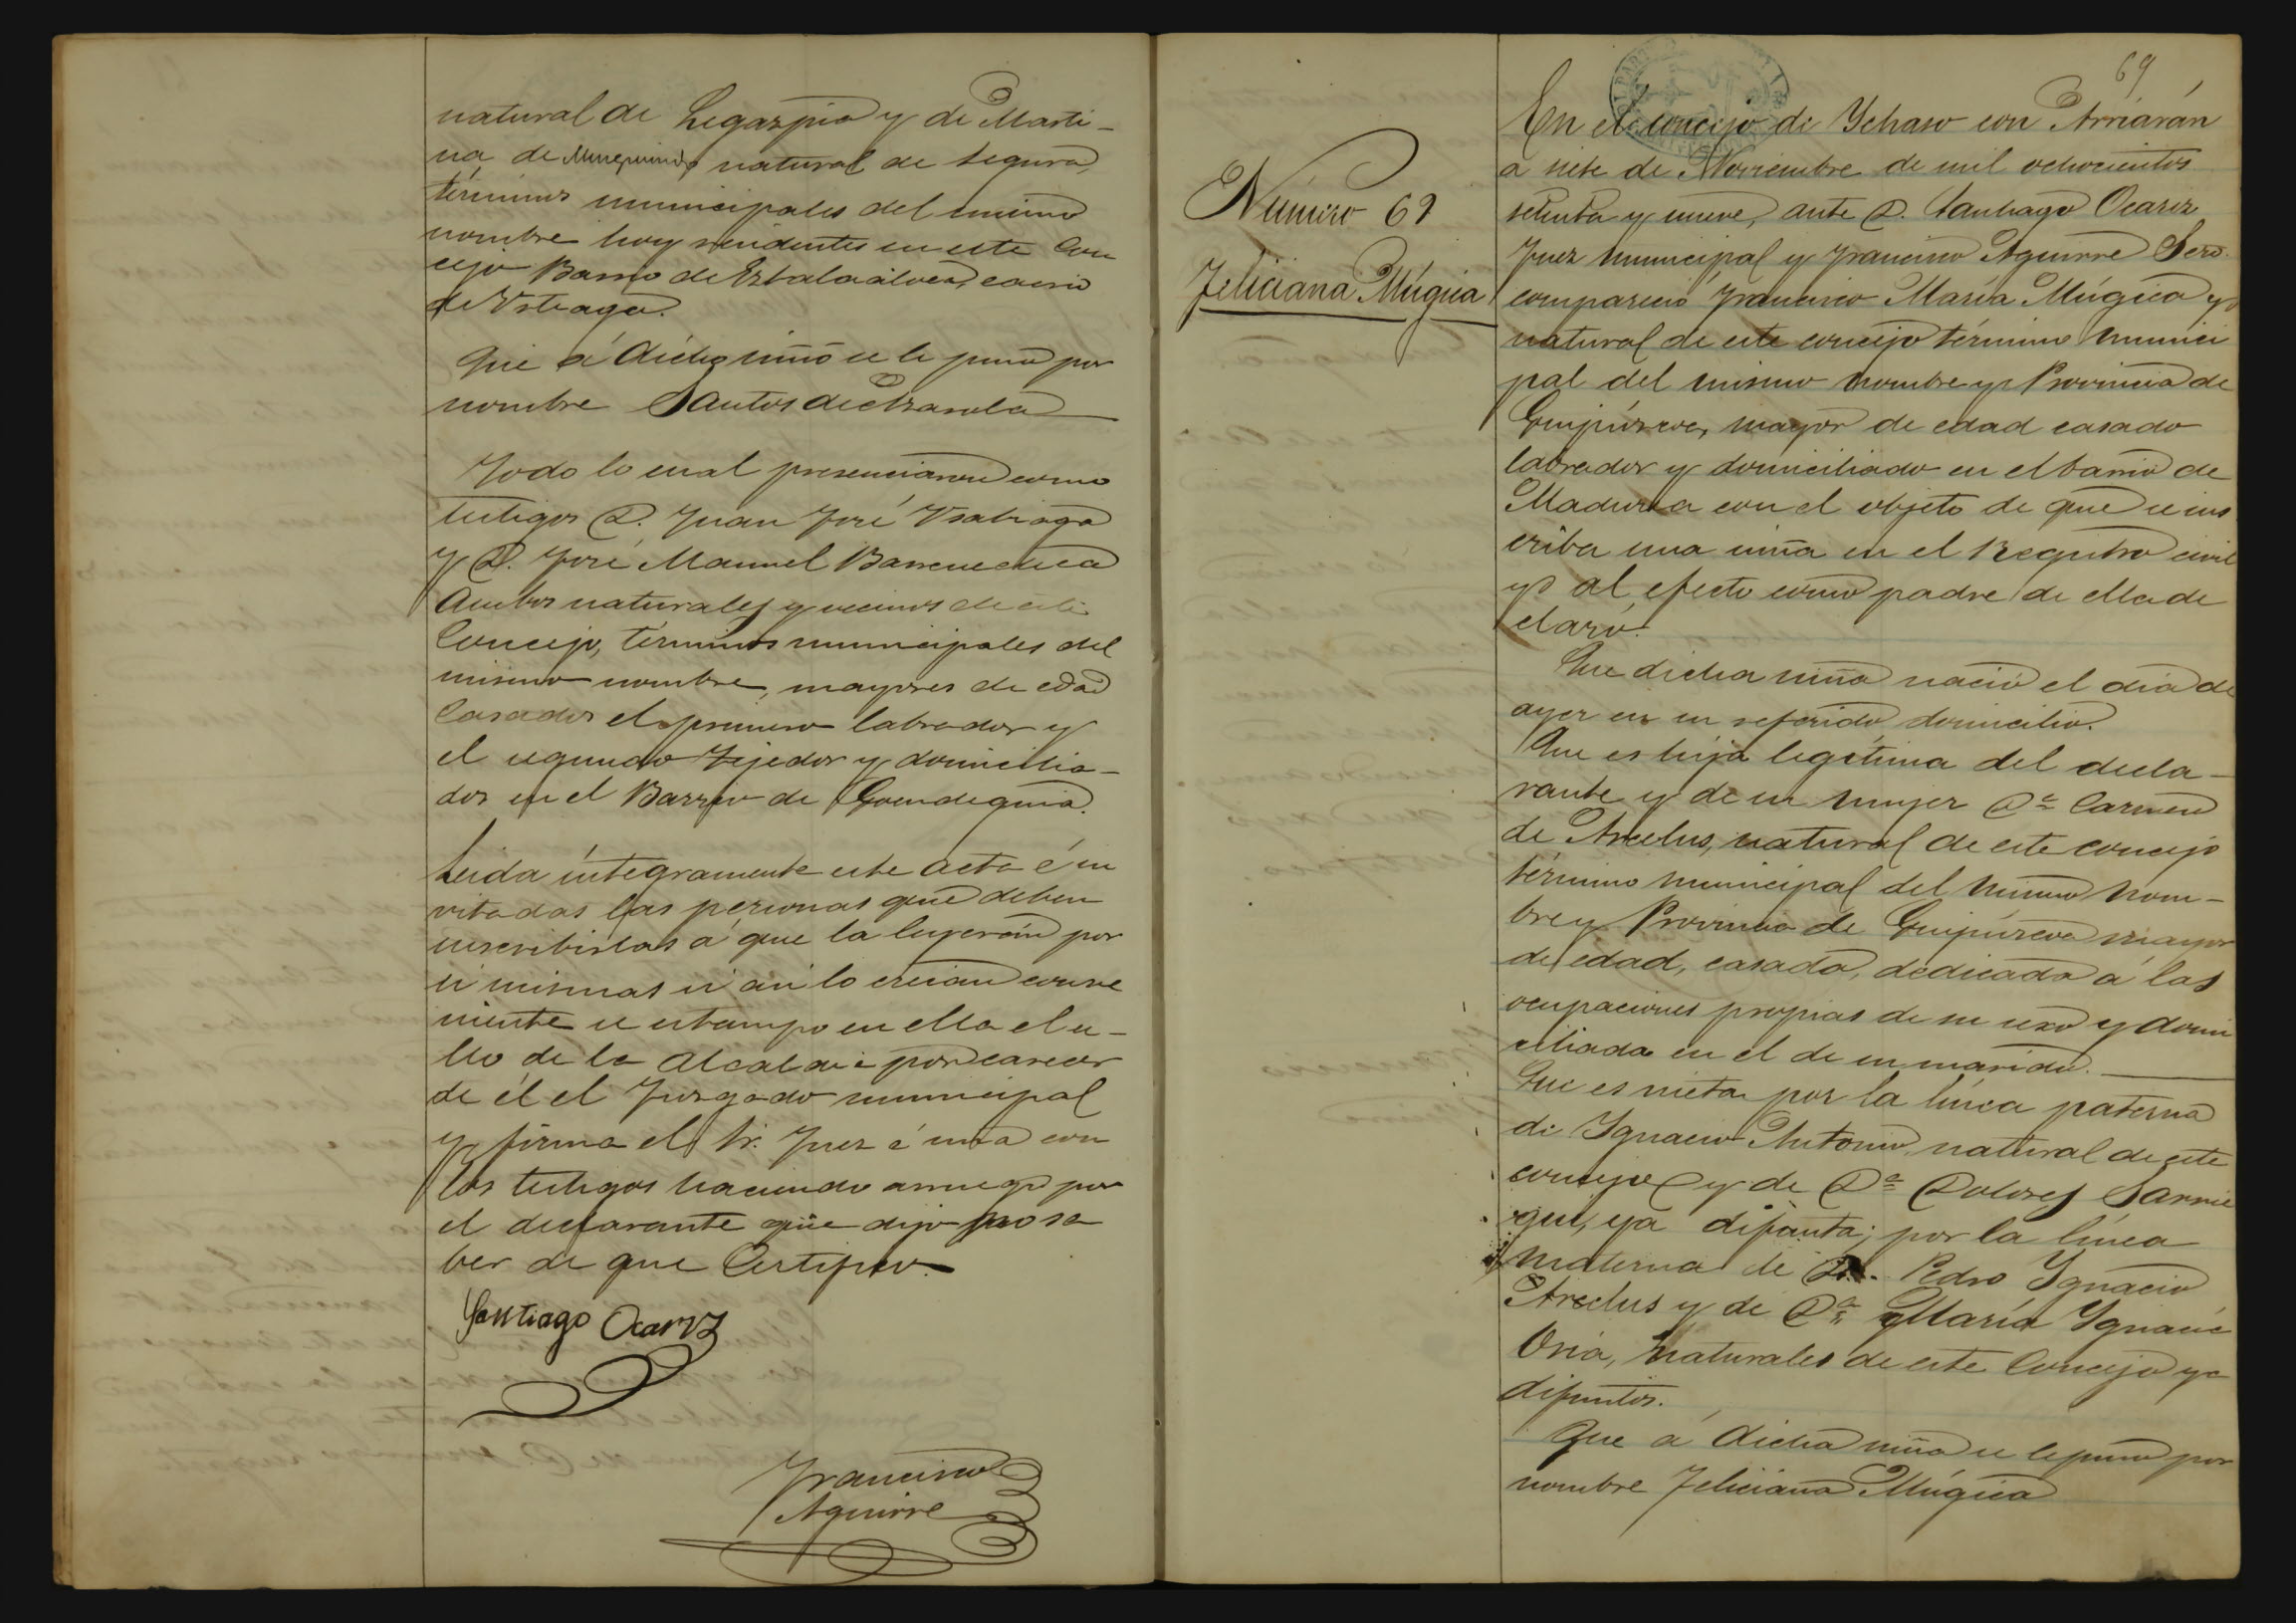 natural de Legazpia y de Marti-
na de natural de Segura,
términos municipales del mismo
nombre hoy residentes en este Con
cejo Barrio de caserio
de Usteaga.
Que á dicho niño se le puso por
nombre Santos
Todo lo cual presenciaron como
testigos D. Juan José Usabiaga
y D. José Manuel Barrenechea
Ambos naturales y vecinos de este
Concejo, términos municipales del
mismo nombre, mayores de edad
Casados el primero labrador y
el segundo Tejedor y domicilia-
dos en el Barrio de
Leida íntegramente este acta é in
vitadas las personas que deben
suscribirlas á que la leyeran por
si mismas si asi lo creian conve
niente se estampo en ella el se-
llo de la Alcaldia por carecer
de él el Juzgado municipal
y firma el Sr. Juez con
los testigos haciendo arruego por
el declarante que dijo no sa
ber de que Certifico.
Santiago Ocariz
Francisco
Aguirre
69
Número 69
Feliciana Múgica
En el concejo de Ychaso con Arriarán
a siete de Noviembre de mil ochocientos
setenta y nueve, ante D. Santiago Ocariz
Juez municipal y Francisco Aguirre Serio.
compareció Francisco María Múgica y
natural de este concejo término munici
pal del mismo nombre y Provincia de
Guipúzcoa, mayor de edad casado
labrador y domiciliado en el barrio de
Maduria con el objeto de que se ins
criba una niña en el Registro civil
y al efecto como padre de ella de
claró:
Que dicha niña nació el dia de
ayer en su referido domicilio.
Que es hija legítima del decla-
rante y de su mujer Dª Carmen
de Arcelus, natural de este concejo
término municipal del mismo nom-
bre y Provincia de Guipúzcoa mayor
de edad, casada, dedicada á las
ocupaciones propias de su sexo y domi
ciliada en el de su marido.
Que es nieta por la línea paterna
de Ygnacio Antonio, natural de este
concejo y de Dª Dolores Sarrie
gui, ya difunta; por la línea
materna de D. Pedro Ygnacio
Arcelus y de Dª María Ygnacia
Oria, naturales de este Concejo ya
difuntos.
Que á dicha niña se le puso por
nombre Feliciana Múgica